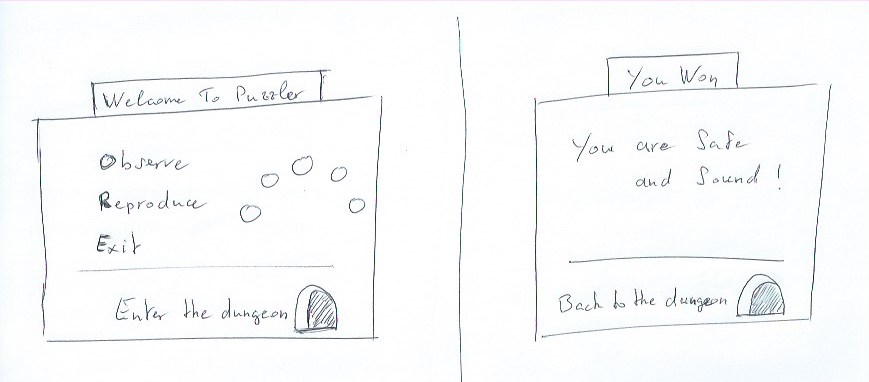 Welcome To Puzzler
Observe
Reproduce
Exit
Enter the dungeon
You Won
You are Safe
and Sound !
Back to the dungeon